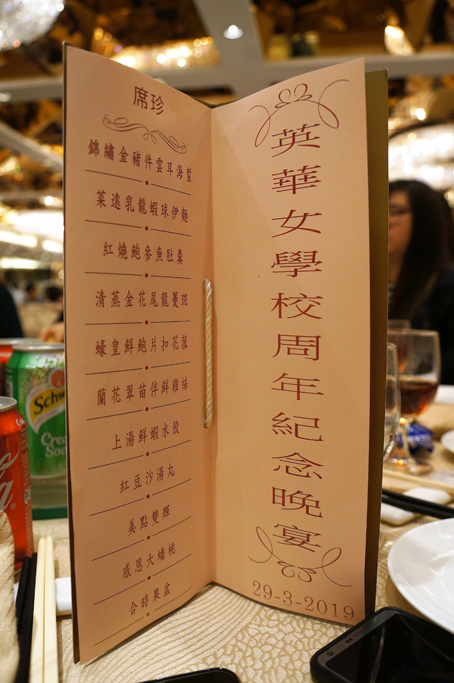 席珍
錦繡金豬件雲耳海蜇
菜遠乳龍蝦球伊麵
紅燒鮑參魚肚羹
清蒸金花尾龍躉斑
蠔皇鮮鮑片扣花菰
蘭花翠苗伴鮮雞球
上湯鮮蝦水餃
紅豆沙湯丸
美點雙輝
感恩大蟠桃
合時果盆
英華女學校周年紀念晚宴
29-3-2019
Schw
Cre
So